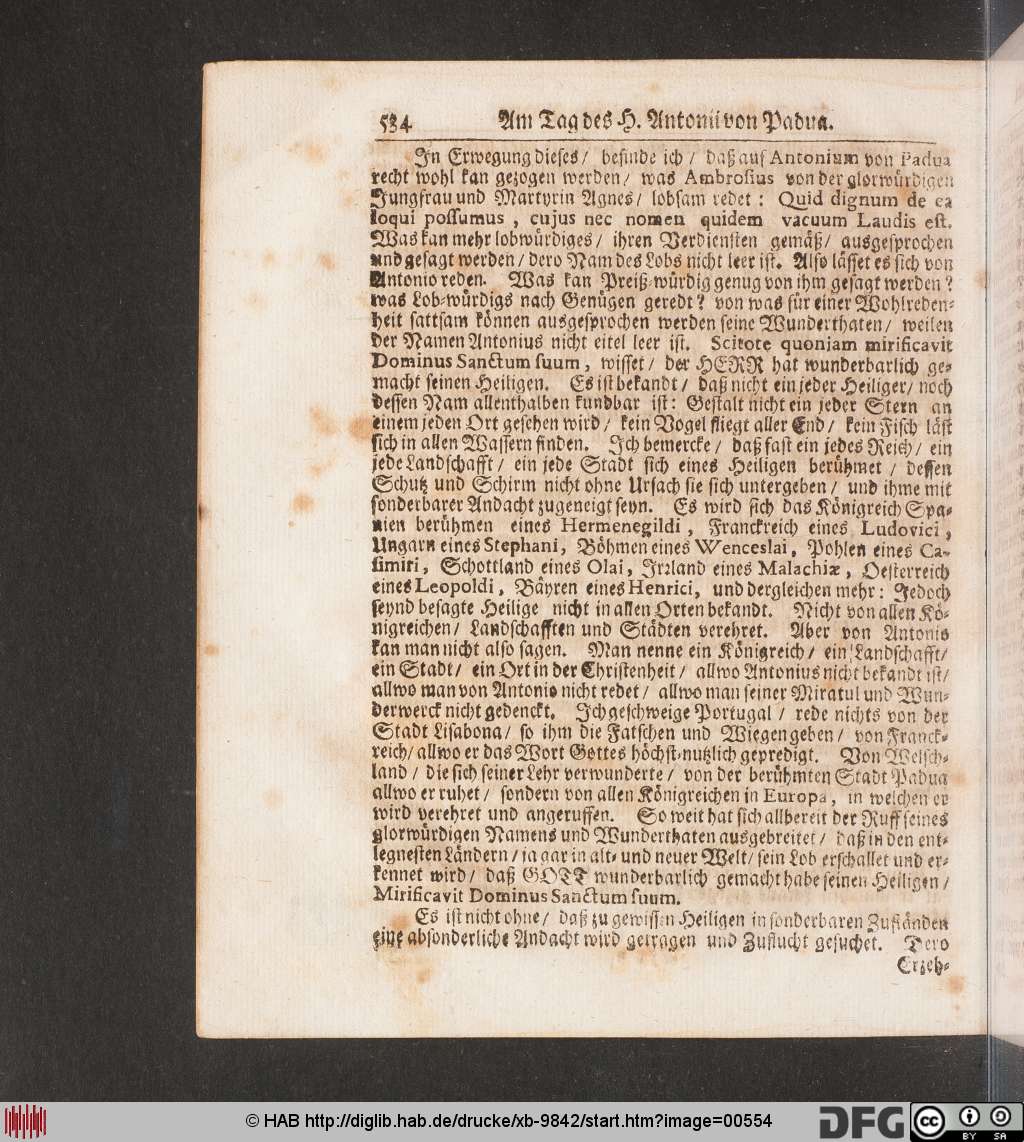 534 Am Tag des H. Antonii von Padua.
In Erwegung dieses/ befinde ich/ daß auf Antonium von Padua
recht wohl kan gezogen werden/ was Ambrosius von der glorwürdigen
Jungfrau und Martyrin Agnes/ lobsam redet: Quid dignum de ea
loqui possumus, cujus nec nomen quidem vacuum Laudis est.
Was kan mehr lobwürdiges/ ihren Verdiensten gemäß/ ausgesprochen
und gesagt werden/ dero Nam des Lobs nicht leer ist. Also lässet es sich von
Antonio reden. Was kan Preiß-würdig genug von ihm gesagt werden?
was Lob-würdigs nach Genügen geredt? von was für einer Wohlreden-
heit sattsam können ausgesprochen werden seine Wunderthaten/ weilen
der Namen Antonius nicht eitel leer ist. Scitote quonjam mirificavit
Dominus Sanctum suum, wisset/ der HERR hat wunderbarlich ge-
macht seinen Heiligen. Es ist bekandt/ daß nicht ein jeder Heiliger/ noch
dessen Nam allenthalben kundbar ist: Gestalt nicht ein jeder Stern an
einem jeden Ort gesehen wird/ kein Vogel fliegt aller End/ kein Fisch läst
sich in allen Wassern finden. Ich bemercke/ daß fast ein jedes Reich/ ein
jede Landschafft/ ein jede Stadt sich eines Heiligen berühmet/ dessen
Schutz und Schirm nicht ohne Ursach sie sich untergeben/ und ihme mit
sonderbarer Andacht zugeneigt seyn. Es wird sich das Königreich Spa-
nien berühmen eines Hermenegildi, Franckreich eines Ludovici,
Ungarn eines Stephani, Böhmen eines Wenceslai, Pohlen eines Ca-
simiri, Schottland eines Olai, Irrland eines Malachiæ, Oesterreich
eines Leopoldi, Bäyren eines Henrici, und dergleichen mehr: Jedoch
seynd besagte Heilige nicht in allen Orten bekandt. Nicht von allen Kö-
nigreichen/ Landschafften und Städten verehret. Aber von Antonio
kan man nicht also sagen. Man nenne ein Königreich/ ein Landschafft/
ein Stadt/ ein Ort in der Christenheit/ allwo Antonius nicht bekandt ist/
allwo man von Antonio nicht redet/ allwo man seiner Miratul und Wun-
derwerck nicht gedenckt. Ich geschweige Portugal/ rede nichts von der
Stadt Lisabona/ so ihm die Fatschen und Wiegen geben/ von Franck-
reich/ allwo er das Wort Gottes höchst-nutzlich gepredigt. Von Welsch-
land/ die sich seiner Lehr verwunderte/ von der berühmten Stadt Padua
allwo er ruhet/ sondern von allen Königreichen in Europa, in welchen er
wird verehret und angeruffen. So weit hat sich allbereit der Ruff seines
glorwürdigen Namens und Wunderthaten ausgebreitet/ daß in den ent-
legnesten Ländern/ ja gar in alt- und neuer Welt/ sein Lob erschallet und er-
kennet wird/ daß GOTT wunderbarlich gemacht habe seinen Heiligen/
Mirificavit Dominus Sanctum suum.
Es ist nicht ohne/ daß zu gewissen Heiligen in sonderbaren Zuständen
eine absonderliche Andacht wird getragen und Zuflucht gesuchet. Dero
Erzeh-
© HAB http://diglib.hab.de/drucke/xb-9842/start.htm?image=00554
DFG cc BY SA